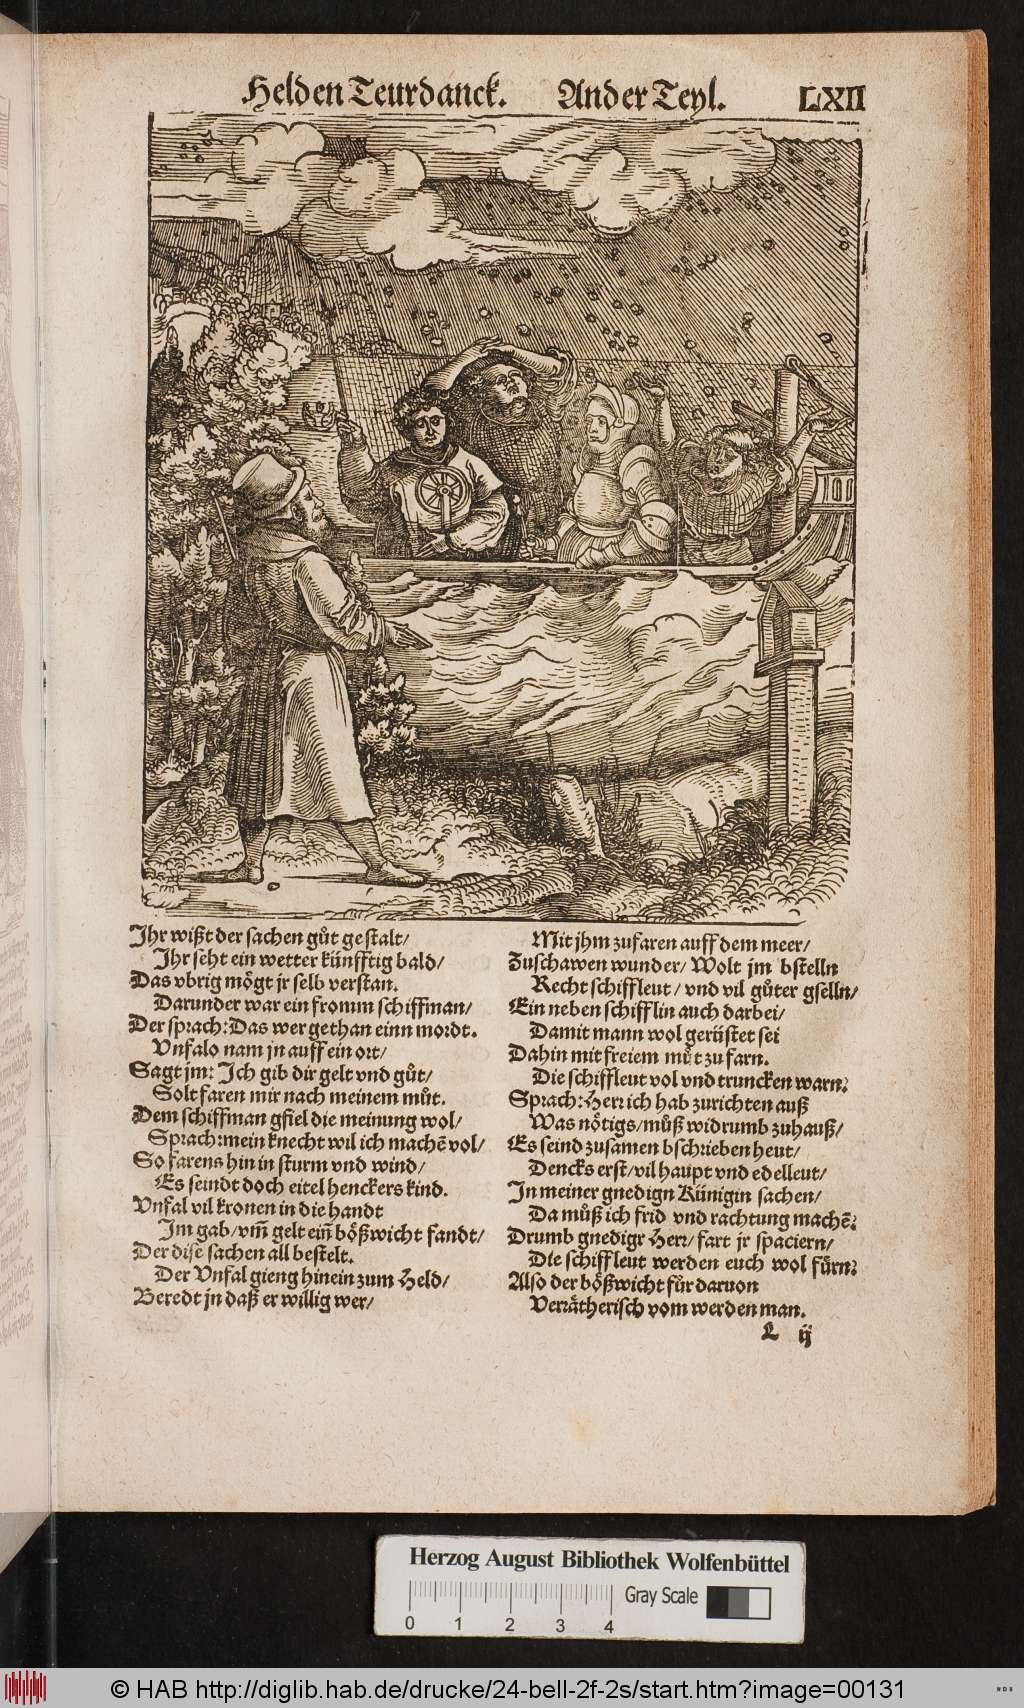 Helden Teurdanck. Ander Teyl. LXII
Ihr wißt der sachen gůt gestalt/
Ihr seht ein wetter künfftig bald/
Das vbrig mögt jr selb verstan.
Darunder war ein fromm schiffman/
Der sprach: Das wer gethan einn mordt.
Vnfalo nam jn auff ein ort/
Sagt jm: Ich gib dir gelt vnd gůt/
Solt faren mir nach meinem můt.
Dem schiffman gfiel die meinung wol/
Sprach: mein knecht wil ich machē vol/
So farens hin in sturm vnd wind/
Es seindt doch eitel henckers kind.
Vnfal vil kronen in die handt
Im gab/ vm̄ gelt ein̄ bößwicht fandt/
Der dise sachen all bestelt.
Der Vnfal gieng hinein zum Held/
Beredt jn daß er willig wer/
Mit jhm zufaren auff dem meer/
Zuschawen wunder/ Wolt jm bstelln
Recht schiffleut/ vnd vil gůter gselln/
Ein neben schifflin auch darbei/
Damit mann wol gerüstet sei
Dahin mit freiem můt zu farn.
Die schiffleut vol vnd truncken warn.
Sprach: Herr ich hab zurichten auß
Was nötigs/ můß widrumb zuhauß/
Es seind zusamen bschrieben heut/
Dencks erst/ vil haupt vnd edelleut/
In meiner gnedign Künigin sachen/
Da můß ich frid vnd rachtung machē.
Drumb gnedigr Herr/ fart jr spaciern/
Die schiffleut werden euch wol fürn.
Also der bößwicht fůr daruon
Verrätherisch vom werden man.
L ij
Herzog August Bibliothek Wolfenbüttel
Gray Scale
0 1 2 3 4
© HAB http://diglib.hab.de/drucke/24-bell-2f-2s/start.htm?image=00131